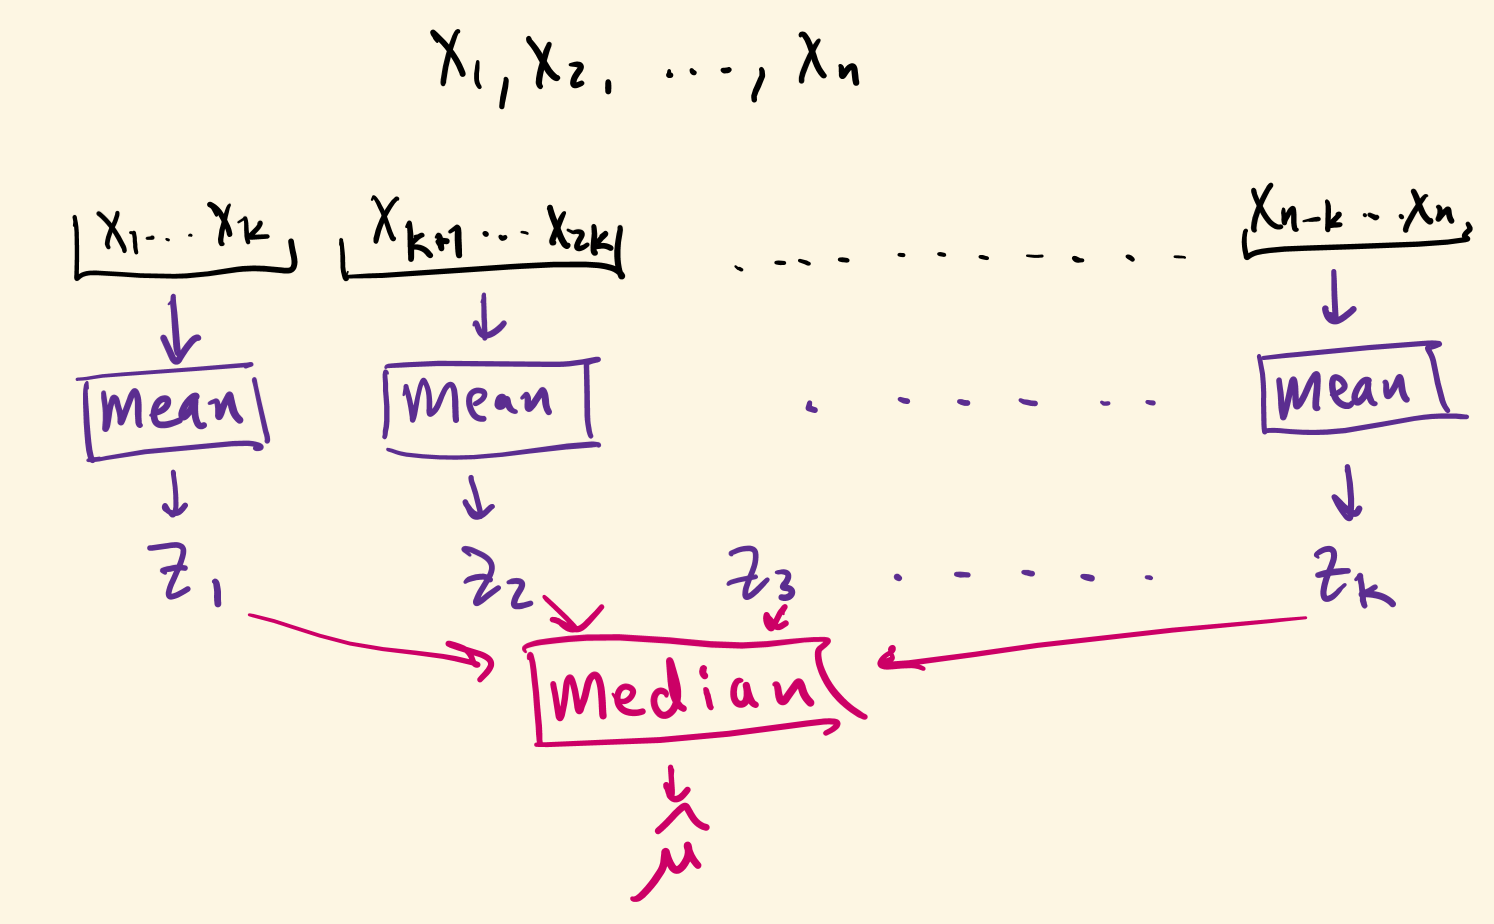 X₁, X₂, ..., Xₙ
X₁ ... Xₖ Xₖ₊₁ ... X₂ₖ ......... Xₙ₋ₖ ... Xₙ,
Mean Mean ...... Mean
Z₁ Z₂ Z₃ ..... Zₖ
Median
μ̂